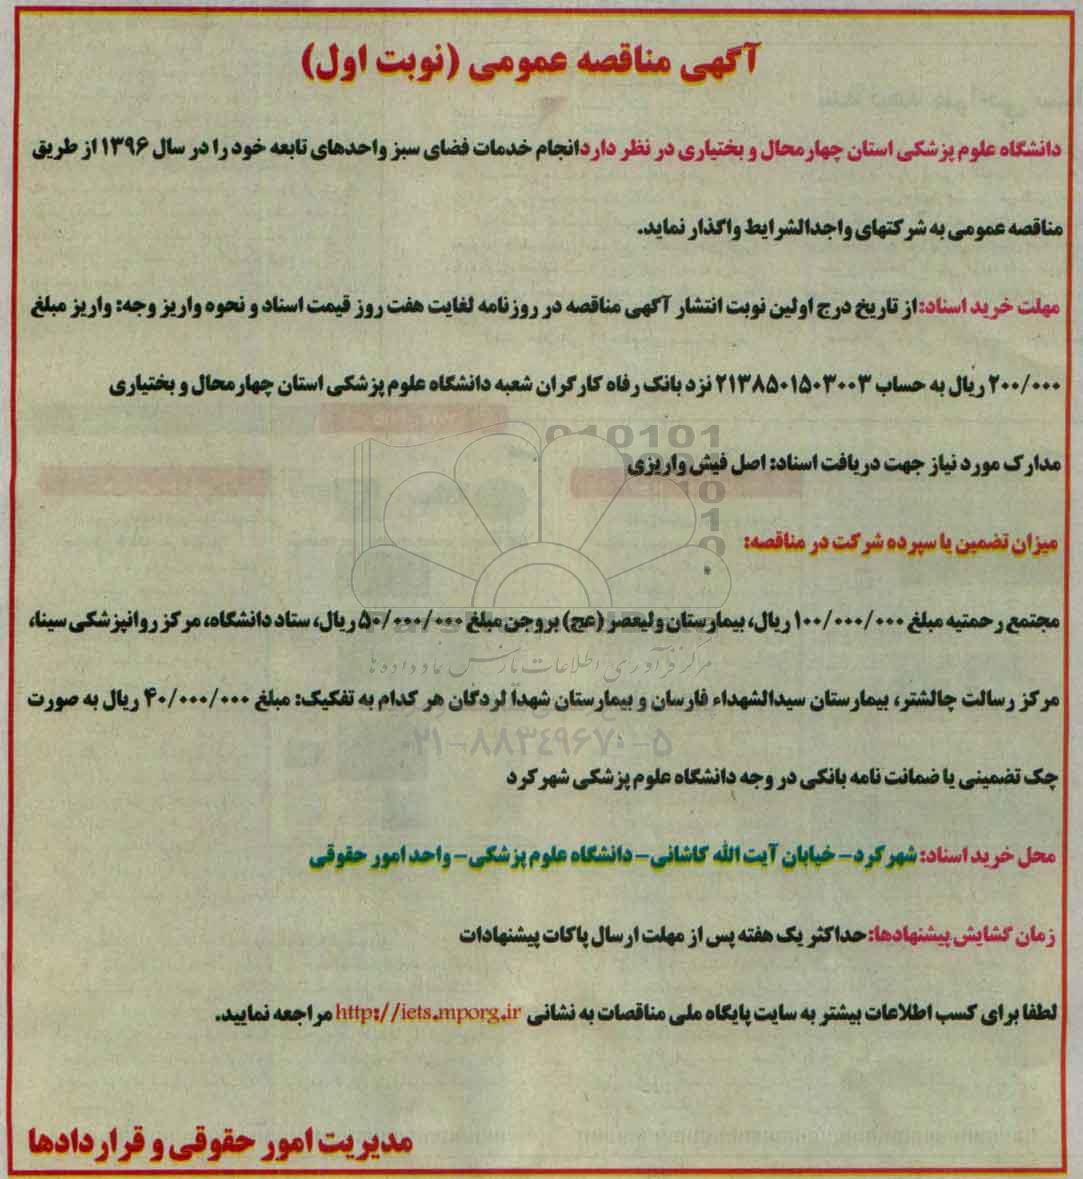 آگهی مناقصه عمومی (نوبت اول)
دانشگاه علوم پزشکی استان چهارمحال و بختیاری در نظر دارد انجام خدمات فضای سبز واحدهای تابعه خود را در سال ۱۳۹۶ از طریق
مناقصه عمومی به شرکتهای واجدالشرایط واگذار نماید.
مهلت خرید اسناد: از تاریخ درج اولین نوبت انتشار آگهی مناقصه در روزنامه لغایت هفت روز قیمت اسناد و نحوه واریز وجه: واریز مبلغ
۲۰۰/۰۰۰ ریال به حساب ۲۱۳۸۵۰۱۵۰۳۰۰۳ نزد بانک رفاه کارگران شعبه دانشگاه علوم پزشکی استان چهارمحال و بختیاری
مدارک مورد نیاز جهت دریافت اسناد: اصل فیش واریزی
میزان تضمین یا سپرده شرکت در مناقصه:
مجتمع رحمتیه مبلغ ۱۰۰/۰۰۰/۰۰۰ ریال، بیمارستان ولیعصر (عج) بروجن مبلغ ۵۰/۰۰۰/۰۰۰ ریال، ستاد دانشگاه، مرکز روانپزشکی سینا،
مرکز فرآوری اطلاعات پارس نماد داده ها
مرکز رسالت چالشتر، بیمارستان سیدالشهداء فارسان و بیمارستان شهدا لردگان هر کدام به تفکیک: مبلغ ۴۰/۰۰۰/۰۰۰ ریال به صورت
۰۲۱-۸۸۳۴۹۶۷۰-۵
چک تضمینی یا ضمانت نامه بانکی در وجه دانشگاه علوم پزشکی شهرکرد
محل خرید اسناد: شهرکرد - خیابان آیت الله کاشانی - دانشگاه علوم پزشکی - واحد امور حقوقی
زمان گشایش پیشنهادها: حداکثر یک هفته پس از مهلت ارسال پاکات پیشنهادات
لطفا برای کسب اطلاعات بیشتر به سایت پایگاه ملی مناقصات به نشانی http://iets.mporg.ir مراجعه نمایید.
مدیریت امور حقوقی و قراردادها